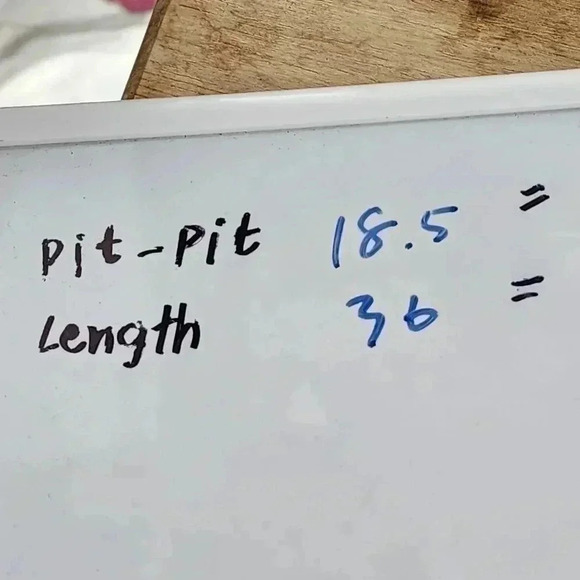 Pit-Pit 18.5 =
Length 36 =